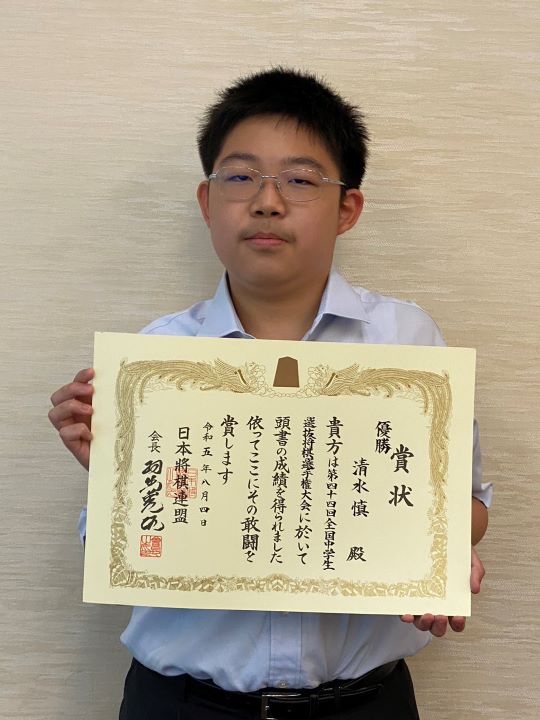 賞状
優勝
清水慎 殿
貴方は第四十四回全国中学生
選抜将棋選手権大会に於いて
頭書の成績を得られました
依ってここにその敢闘を
賞します
令和五年八月四日
日本将棋連盟
会長 羽生善治